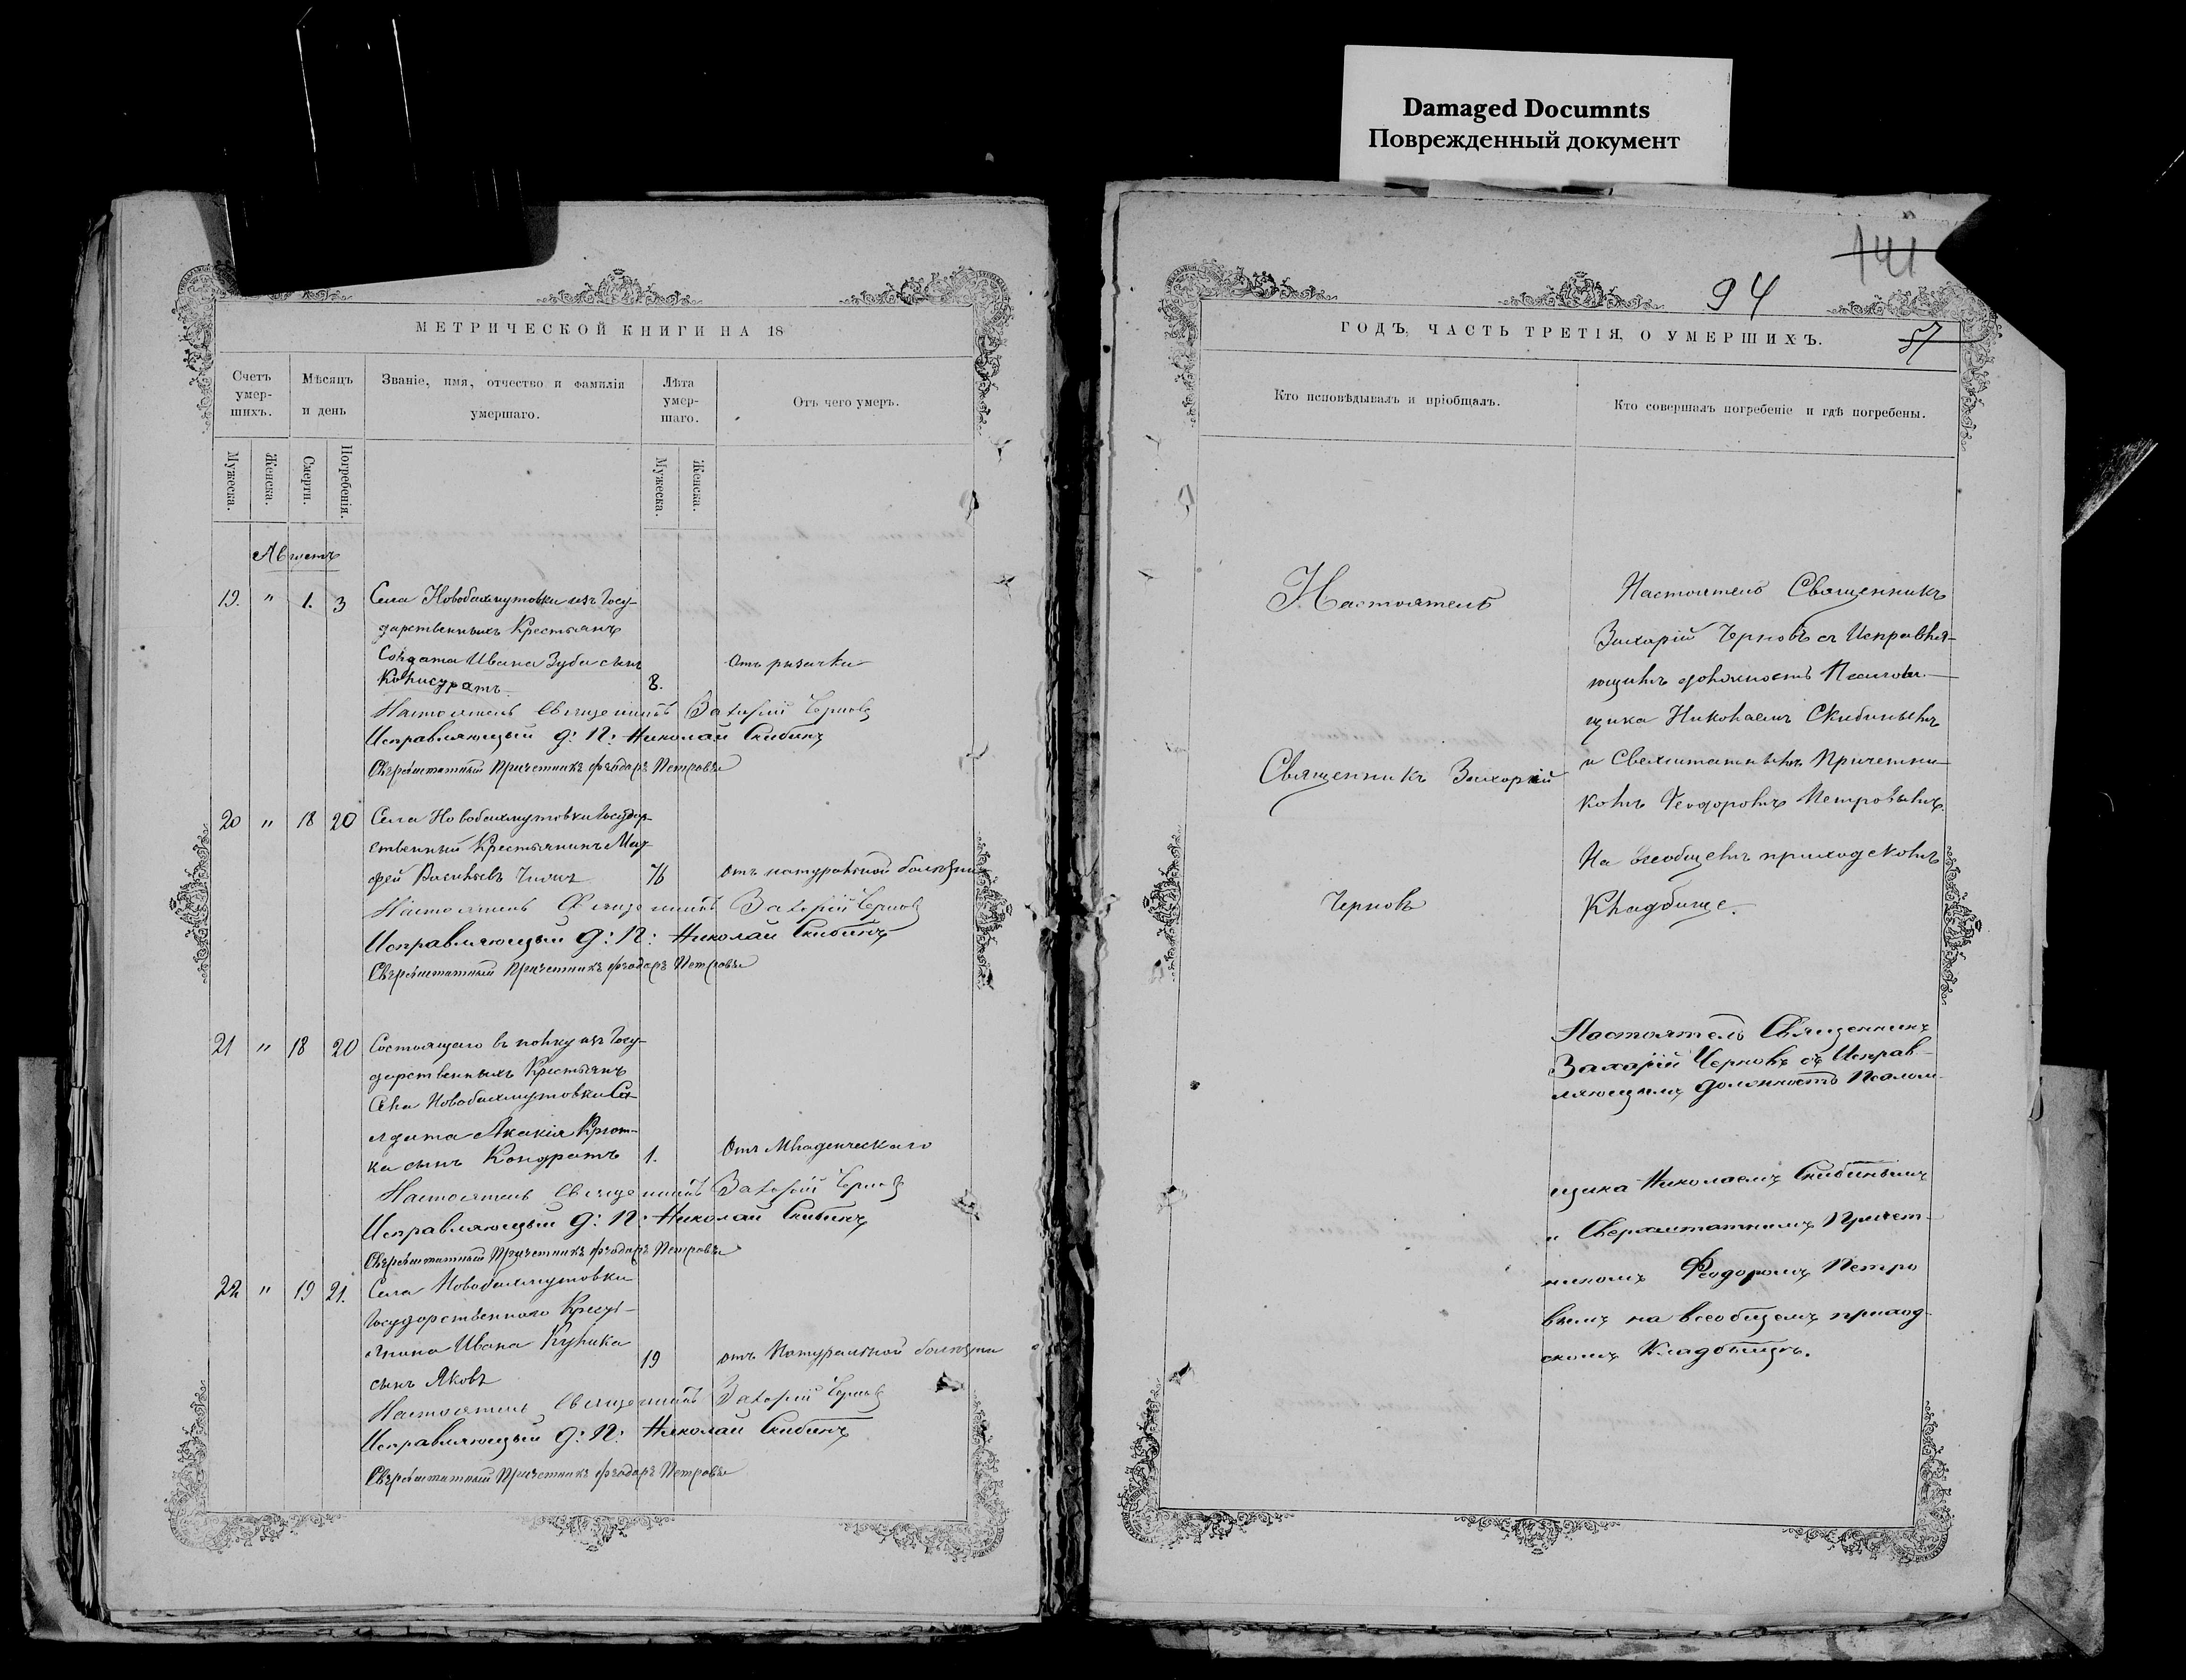 Damaged Documnts
Поврежденный документ
МЕТРИЧЕСКОЙ КНИГИ НА 18
Счетъ умер-шихъ.
Мѣсяцъ и день
Званіе, имя, отчество и фамилія умершаго.
Лѣта умер-шаго.
Отъ чего умеръ.
Мужеска.
Женска.
Смерти.
Погребенія.
Мужеска.
Женска.
Августъ
19. " 1. 3 Села Новобахмутовки изъ Госу-
дарственныхъ Крестьянъ
Солдата Ивана Зуба сынъ Отъ
8.
Настоятель Священникъ Захарій Черновъ
Исправляющій д: П: Николай Скибинъ
Сверхштатный Причетникъ Феодоръ Петровъ
20 " 18 20 Села Новобахмутовки Государ-
ственный Крестьянинъ
фей Васильевъ 76 отъ натуральной болезни
Настоятель Священникъ Захарій Черновъ
Исправляющій д: П: Николай Скибинъ
Сверхштатный Причетникъ Феодоръ Петровъ
21 " 18 20 Состоящаго въ полку изъ Госу-
дарственныхъ Крестьянъ
Села Новобахмутовки Со-
лдата Акакія Крот-
ка сынъ Кондратъ 1. Отъ Младенческаго
Настоятель Священникъ Захарій Черновъ
Исправляющій д: П: Николай Скибинъ
Сверхштатный Причетникъ Феодоръ Петровъ
22 " 19 21. Села Новобахмутовки
Государственного Крестья-
янина Ивана Кулика
19 отъ Натуральной болезни
сынъ Яковъ
Настоятель Священникъ Захарій Черновъ
Исправляющій д: П: Николай Скибинъ
Сверхштатный Причетникъ Феодоръ Петровъ
141
94
57
ГОДЪ, ЧАСТЬ ТРЕТІЯ, О УМЕРШИХЪ.
Кто исповѣдывалъ и пріобщалъ.
Кто совершалъ погребеніе и гдѣ погребены.
Настоятель
Священникъ Захарий
Черновъ
Настоятель Священникъ
Захарій Черновъ съ Исправля-
ющимъ должность Псалом-
щика Николаемъ Скибинымъ
и Сверхштатнымъ Причетни-
комъ Феодоромъ Петровымъ
На всеобщемъ приходскомъ
Кладбище.
Настоятель Священникъ
Захарій Черновъ съ Исправ-
ляющимъ должность Псалом-
щика Николаемъ Скибинымъ
и Сверхштатнимъ Причет-
никомъ Феодоромъ Петро
вымъ на всеобщемъ приход-
скомъ Кладбищѣ.